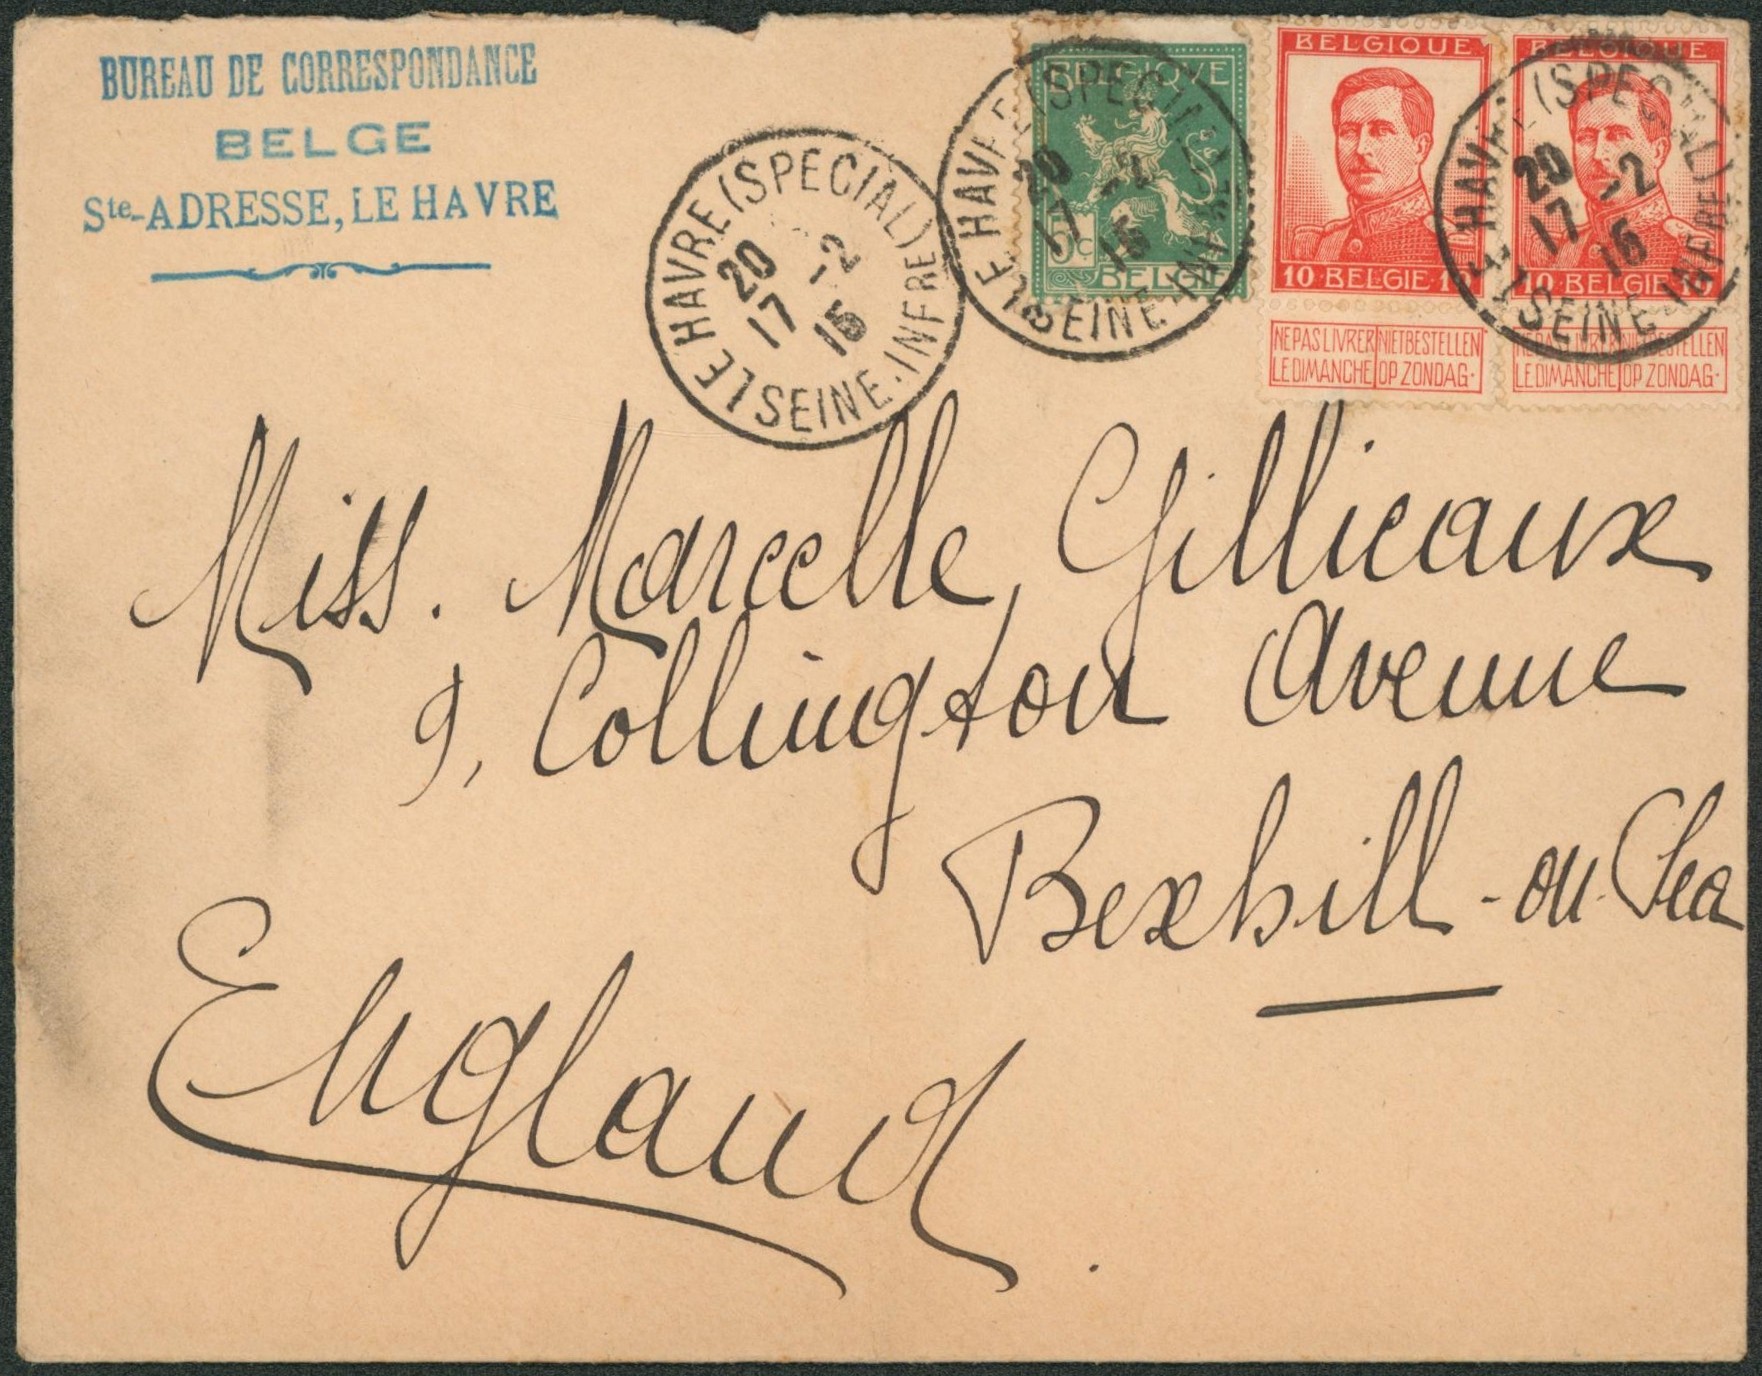 BUREAU DE CORRESPONDANCE
BELGE
Ste-ADRESSE, LE HAVRE
LE HAVRE (SPECIAL)
20 -2
17 15
SEINE-INFRE
BELGIQUE
5c
BELGIE
LE HAVRE (SPECIAL)
20 -2
17 15
SEINE-INFRE
BELGIQUE
10·BELGIE·10
NE PAS LIVRER NIET BESTELLEN
LE DIMANCHE OP ZONDAG·
BELGIQUE
10·BELGIE·10
NE PAS LIVRER NIET BESTELLEN
LE DIMANCHE OP ZONDAG·
LE HAVRE (SPECIAL)
20 -2
17 15
SEINE-INFRE
Miss. Marcelle Gillieaux
9, Collington Avenue
Bexhill-on-Sea
England.